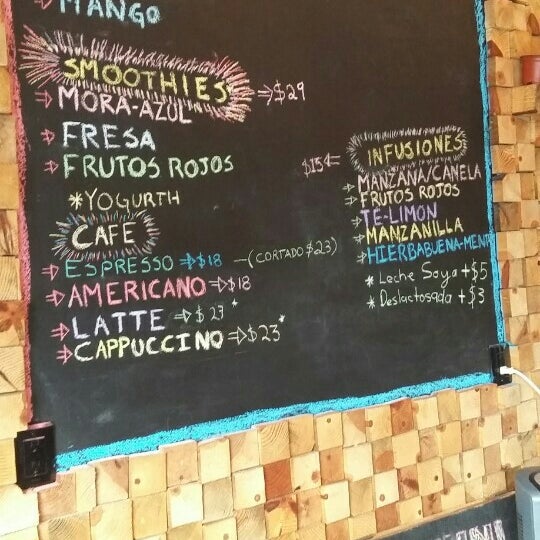 ⇒ MANGO
SMOOTHIES ⇒ $29
⇒ MORA-AZUL
⇒ FRESA
⇒ FRUTOS ROJOS
*YOGURTH
CAFÉ
⇒ ESPRESSO ⇒ $18 —(CORTADO $23)
⇒ AMERICANO ⇒ $18
⇒ LATTE ⇒ $23*
⇒ CAPPUCCINO ⇒ $23*
$15 ⇐ INFUSIONES
⇒ MANZANA/CANELA
⇒ FRUTOS ROJOS
⇒ TÉ-LIMON
⇒ MANZANILLA
⇒ HIERBABUENA-MENTA
* Leche Soya +$5
* Deslactosada +$3